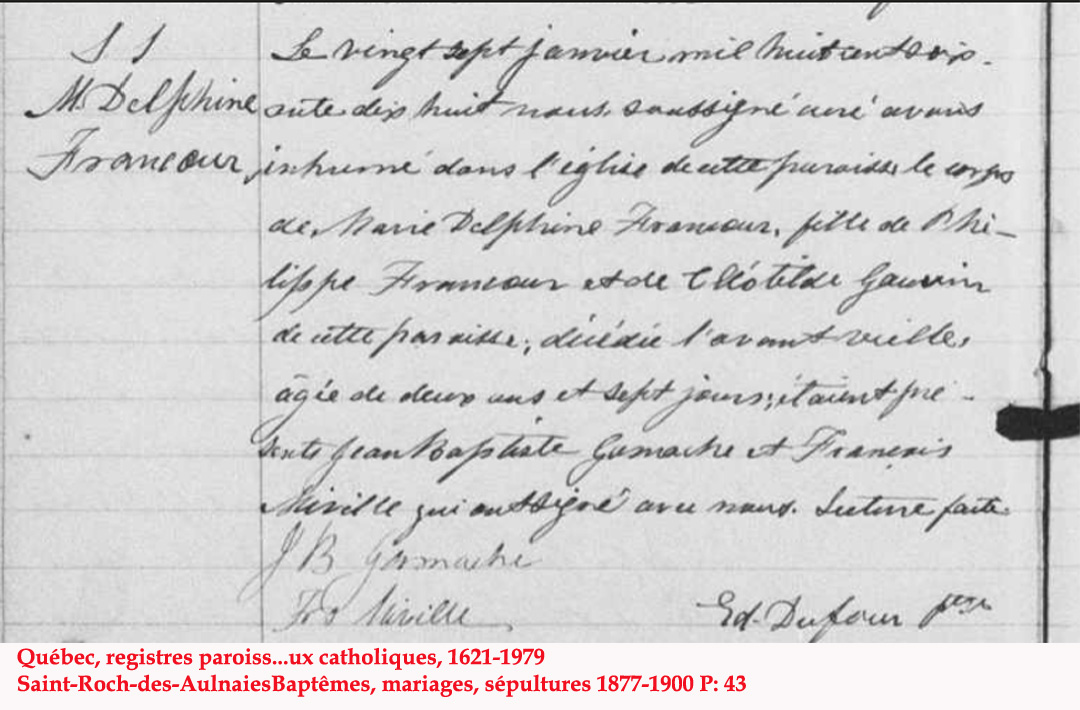 S S
M. Delphine
Francour,
Le vingt sept janvier mil huit cent soix-
ante dix huit nous, soussigné curé avons
inhumé dans l'église de cette paroisse le corps
de, Marie Delphine Francour, fille de Phi-
lippe Francour et de Clotilde Gauvin
de cette paroisse, décédée l'avant veille,
âgée de deux ans et sept jours; étaient pré-
sents Jean Baptiste Gamache et François
Miville qui ont signé avec nous. Lecture faite.
J B Gamache
Frs Miville
Ed. Dufour ptre
Québec, registres paroiss...ux catholiques, 1621-1979
Saint-Roch-des-AulnaiesBaptêmes, mariages, sépultures 1877-1900 P: 43